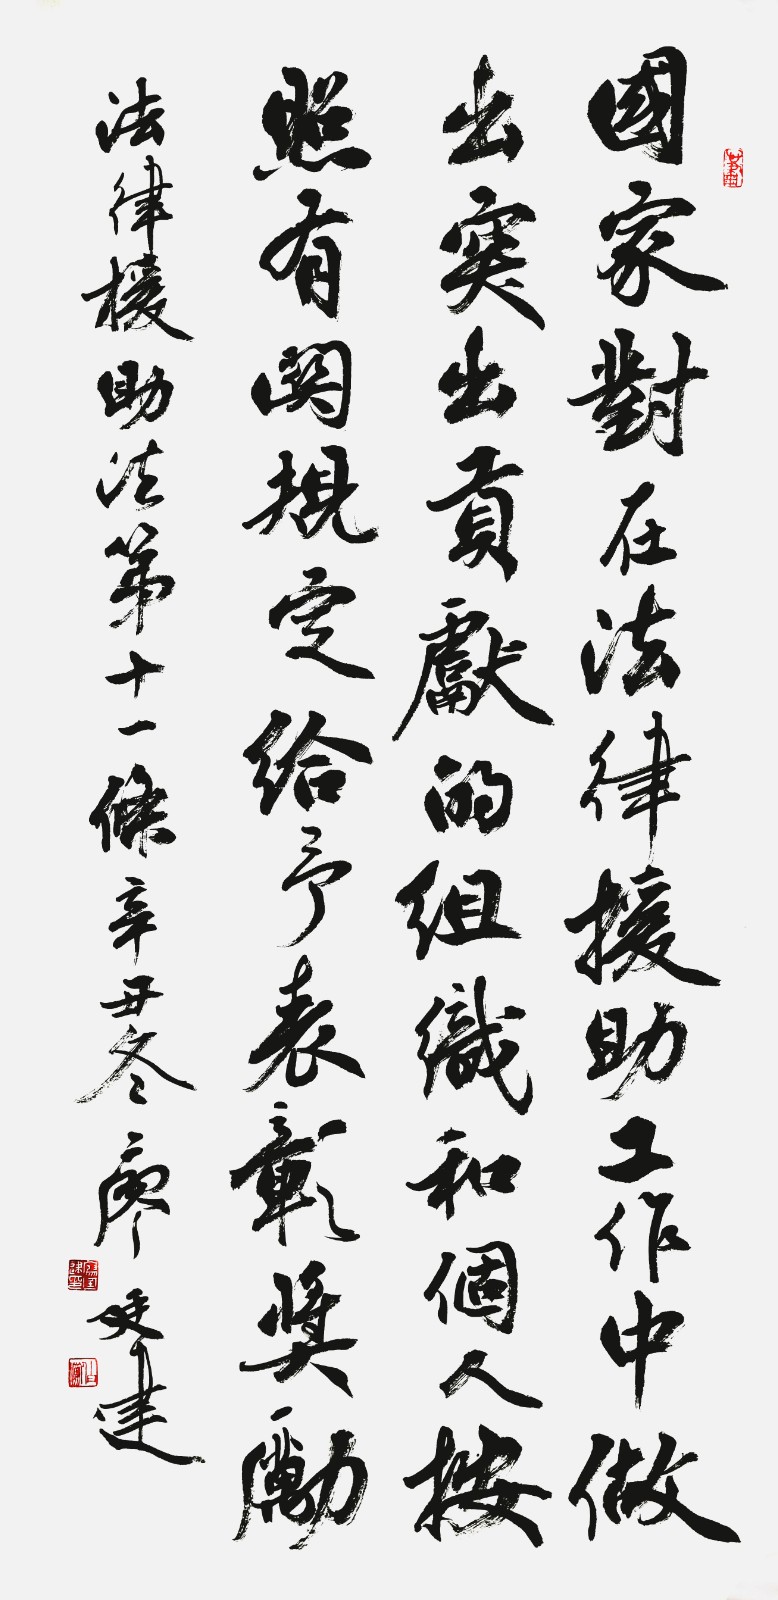 國家對在法律援助工作中做
出突出貢獻的組織和個人按
照有關規定給予表彰獎勵
法律援助法第十一條辛丑冬廖建